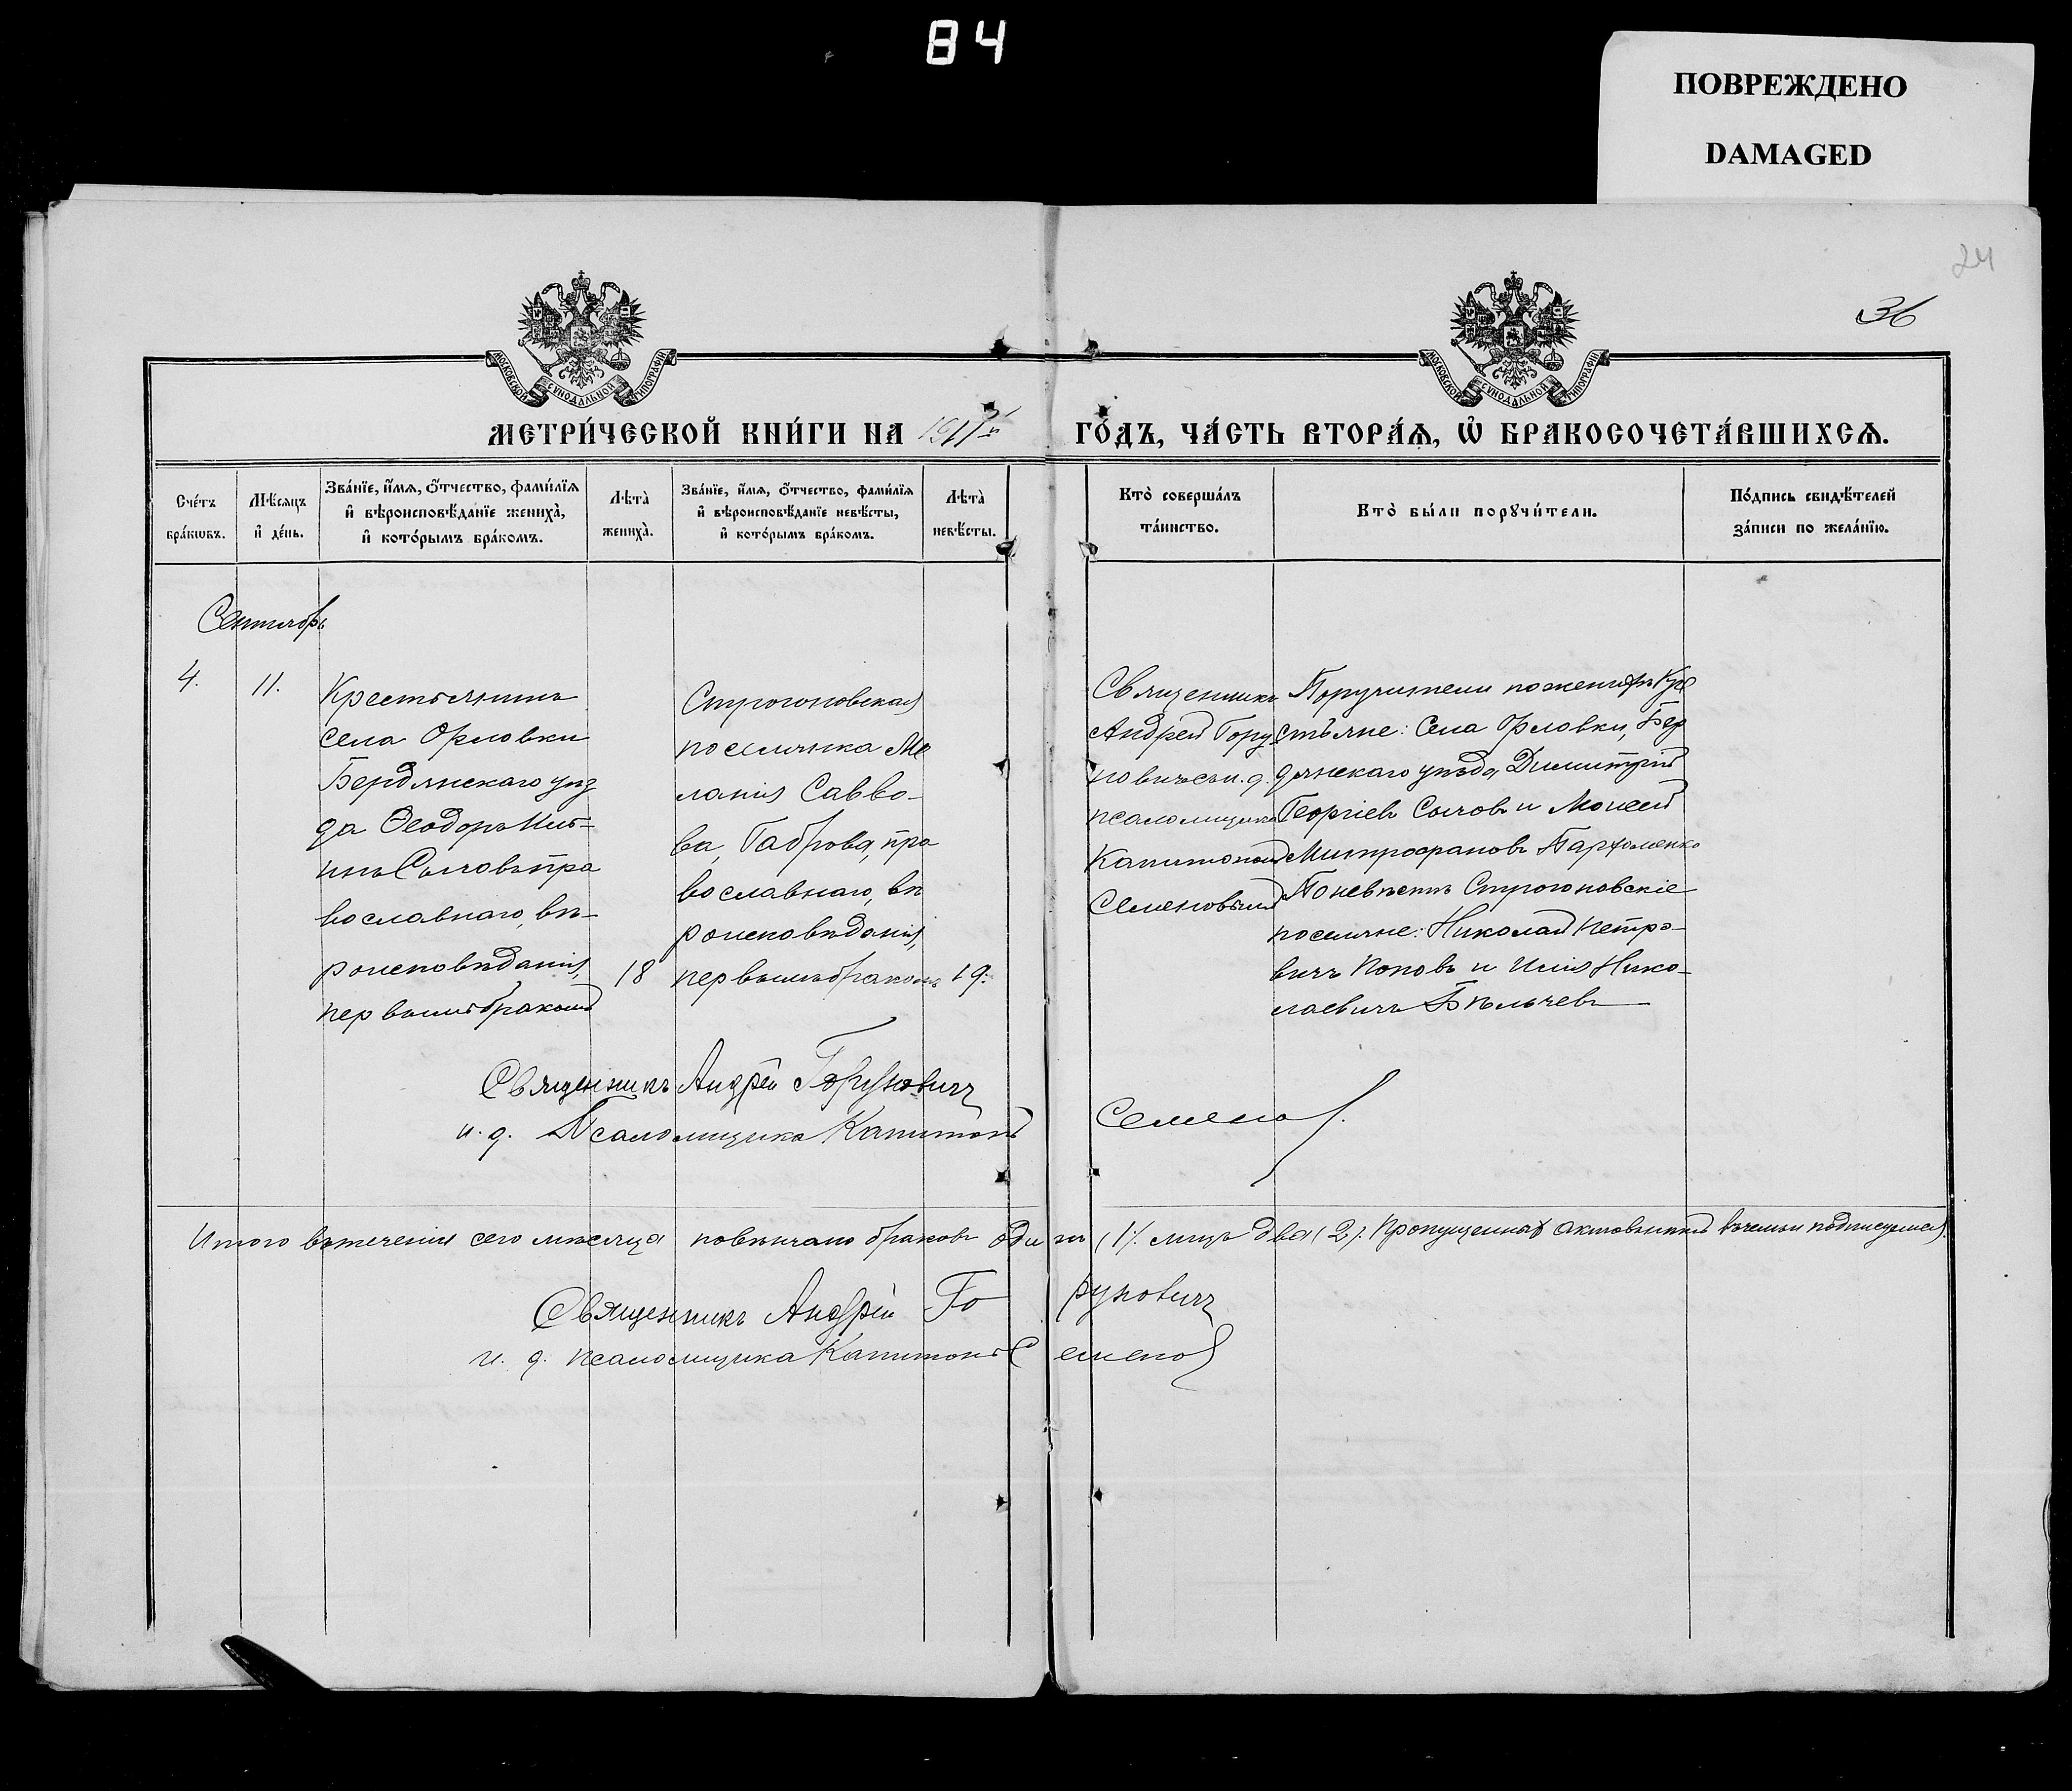 84
ПОВРЕЖДЕНО
DAMAGED
24
36
МОСКОВСКОЙ СѴНОДАЛЬНОЙ ТИПОГРАФІИ
МОСКОВСКОЙ СѴНОДАЛЬНОЙ ТИПОГРАФІИ
МЕТРИ́ЧЕСКОЙ КНИ́ГИ НА 1911й ГО́ДЪ, ЧА́СТЬ ВТОРА́Ѧ, Ѡ҆ БРАКОСОЧЕТА́ВШИХСѦ.
Сче́тъ
бра́кѡвъ.
Мѣ́сяцъ
и҆ де́нь.
Зва́нїе, и҆́мѧ, ѻ҆́тчество, фами́лїѧ
и҆ вѣроисповѣ́данїе жениха̀,
и҆ кото́рымъ бра́комъ.
Лѣта̀
жениха̀.
Зва́нїе, и҆́мѧ, ѻ҆́тчество, фами́лїѧ
и҆ вѣроисповѣ́данїе невѣ́сты,
и҆ кото́рымъ бра́комъ.
Лѣта̀
невѣ́сты.
Кто̀ соверша́лъ
та́инство.
Кто̀ бы́ли порꙋчи́тели.
По́дпись свидѣ́телей
за́писи по жела́нїю.
Сентябрь
4.
11.
Крестьянинъ
села Орловки
Бердянскаго уѣз
да Ѳеодоръ
Сычовъ пра
вославнаго, вѣ-
роисповѣданія,
первымъ бракомъ
18
Строгоновская
поселянка Ме
ланія Савво-
ва, Габрова, пра
вославнаго, вѣ
роисповѣданія,
первымъ бракомъ
19.
Священникъ
Андрей Гору
новичъ съ и. д.
псаломщика
Капитономъ
Семеновымъ
Поручители по женихѣ Кре
стьяне: Села Орловки, Бер
дянскаго уѣзда, Димитрій
Георгіевъ Сычовъ и Моисей
Митрофановъ Пархоменко
По невѣстѣ Строгоновскіе
поселяне: Николай Петро-
вичъ Поповъ и Илія Нико-
лаевичъ Бѣльчевъ
Священникъ Андрей Горуновичъ
и. д. Псаломщика Капитонъ Семенов.
Итого въ теченіи сего мѣсяца повѣнчано браковъ одинъ (1). лицъ два (2). Пропущенныхъ актовъ нѣтъ въ чемъ и подписуемся.
Священникъ Андрей Горуновичъ
и. д. псаломщика Капитонъ Семенов